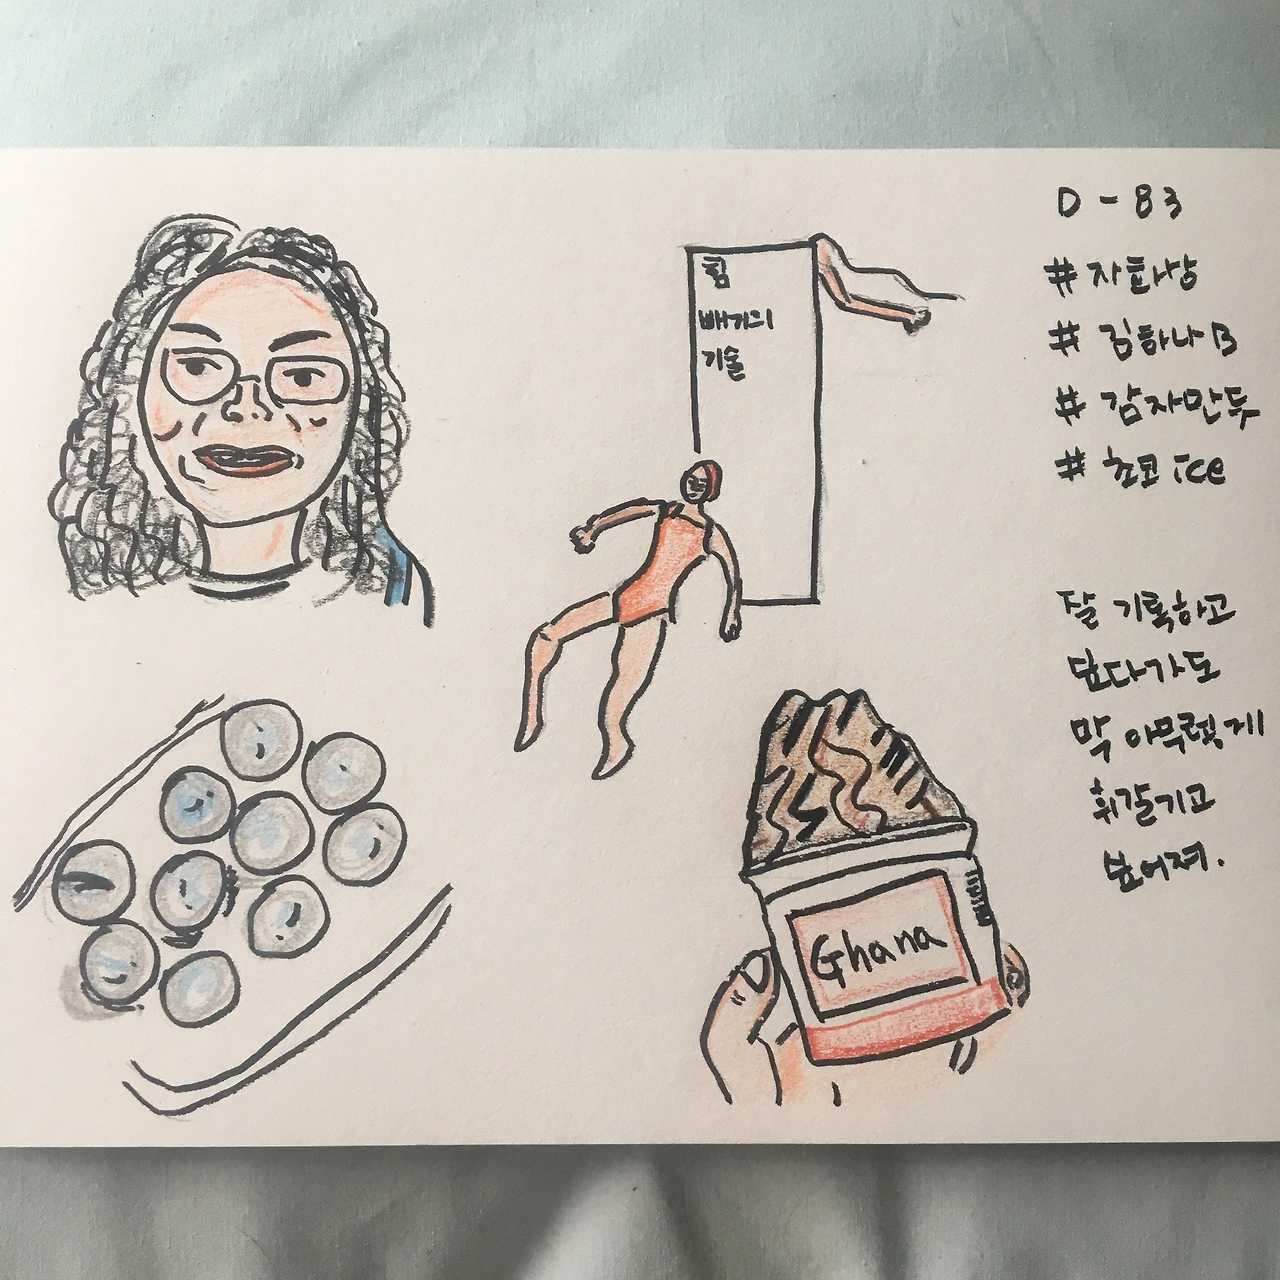 힘
빼기의
기술
Ghana
D-83
# 자화상
# 김하나 B
# 감자만두
# 초코 ice
잘 기록하고
싶다가도
막 아무렇게
휘갈기고
싶어져.